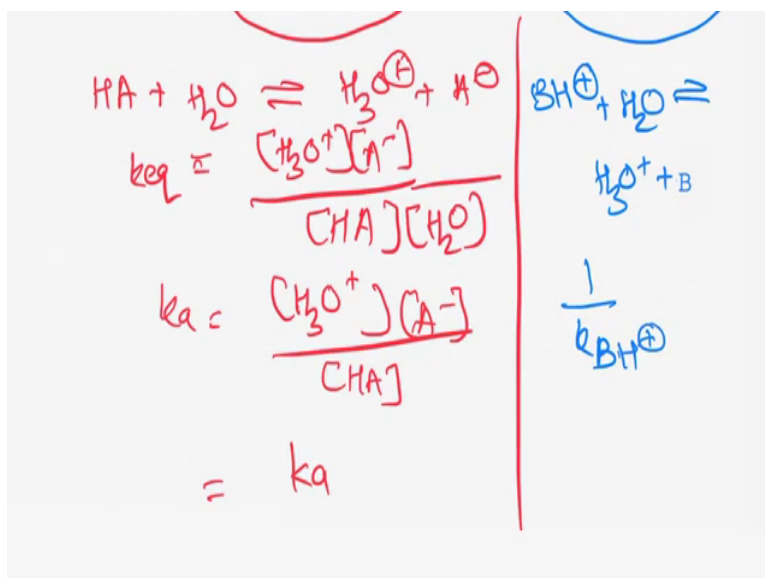 HA + H₂O ⇌ H₃O⊕ + A⊖
keq = [H₃O⁺][A⁻]
[HA][H₂O]
ka = [H₃O⁺][A⁻]
[HA]
= ka
BH⊕ + H₂O ⇌
H₃O⁺ + B
1
kBH⊕